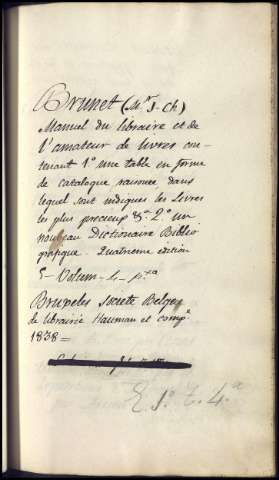 Brunet (Mr. J. Ch)
Manuel du libraire et de
l'amateur de livres con-
tenant 1º une table en forme
de catalogue raisonee dans
lequel sont indiques les Livres
les plus precieux &ª 2º un
nouveau Dictionaire Biblio
grafique. Quatrieme edition
5 Volum. 4.
Bruxeles Societe Belge
de librairie Hauman et compª
1838=
E 1º. t. 4.ª